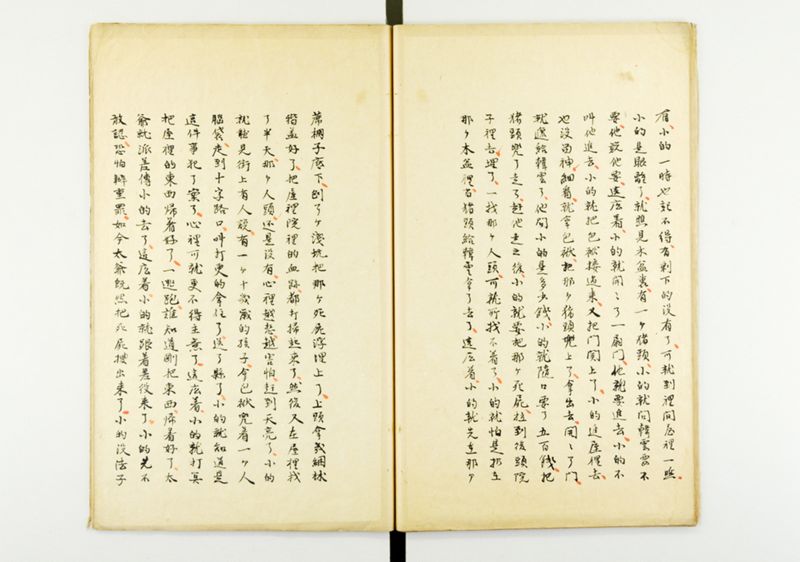 有小的一時也記不得有剩下的没有了可就到裡间屋裡一照
小的是眼離了就照見木盆裏有一个猪頭小的就问韓雲雲不
要他説他要這庅着小的就開了一扇門他就要進去小的不
叫他進去小的就把包袱接過來又把門関上了小的進屋裡去
也没留神細看就拿包袱把那个猪頭兜上了拿出去開了門
就遞給韓雲了他问小的是多少錢小的就隨口要了五百錢把
猪頭兜了走了赶他走之後小的就要把那个死屍拉到後頭院
子裡去埋了一找那个人頭可就所找不着了小的就怕是扔在
那个木盆裡當猪頭給韓雲拿了去了這庅着小的就先在那个
蓆棚子底下刨了个淺坑把那个死屍浮埋上了上頭拿我綑秫
稭盖好了把屋裡院裡的血跡都打掃起來了然後又在屋裡找
了半天那个人頭還是没有心裡越想越害怕赶到天亮了小的
就聽見街上有人説有一个十幾歲的孩子拿包袱兜着一个人
腦袋走到十字路口叫打更的拿住了送了縣了小的就知道是
這件事犯了案了心裡可就更不得主意了這庅着小的就打算
把屋裡的東西帰着好了一跑誰知道剛把東西帰着好了太
爺就派差傳小的去了這庅着小的就跟着差役來了小的先不
敢認恐怕辦重罪如今太爺既然把死屍搜出來了小的没法子